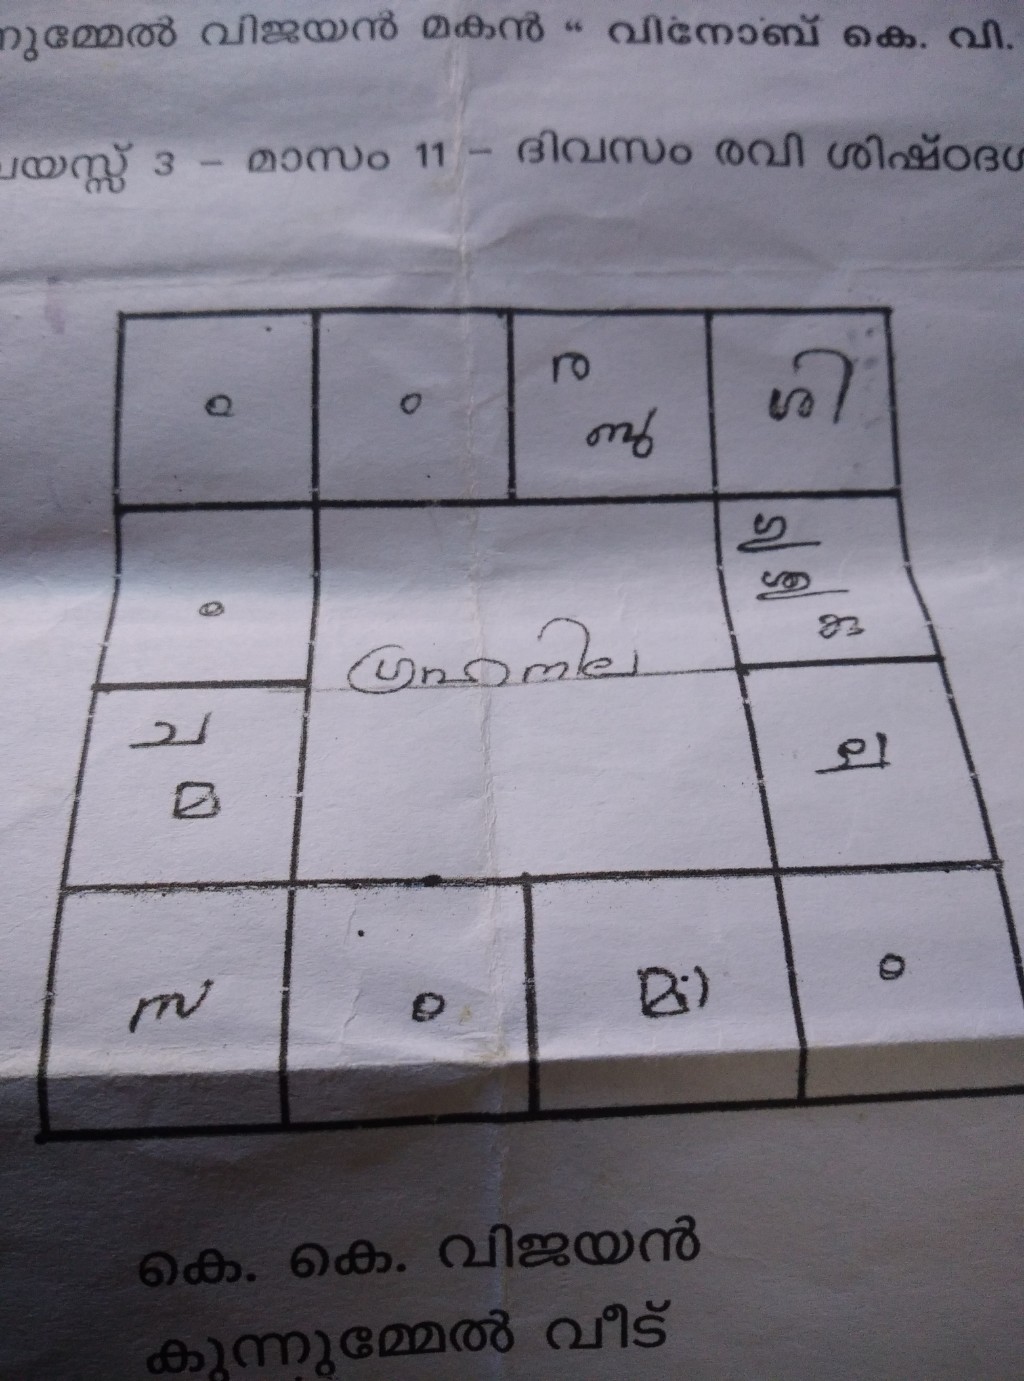 നുമ്മേൽ വിജയൻ മകൻ “ വിനോബ് കെ. വി.
വയസ്സ് 3 – മാസം 11 – ദിവസം രവി ശിഷ്ഠദശ
ര ശി
ബു
ഗു
ശു
കു
ഗ്രഹനില
ച
മ
ല
സ മാ
കെ. കെ. വിജയൻ
കുന്നുമ്മേൽ വീട്